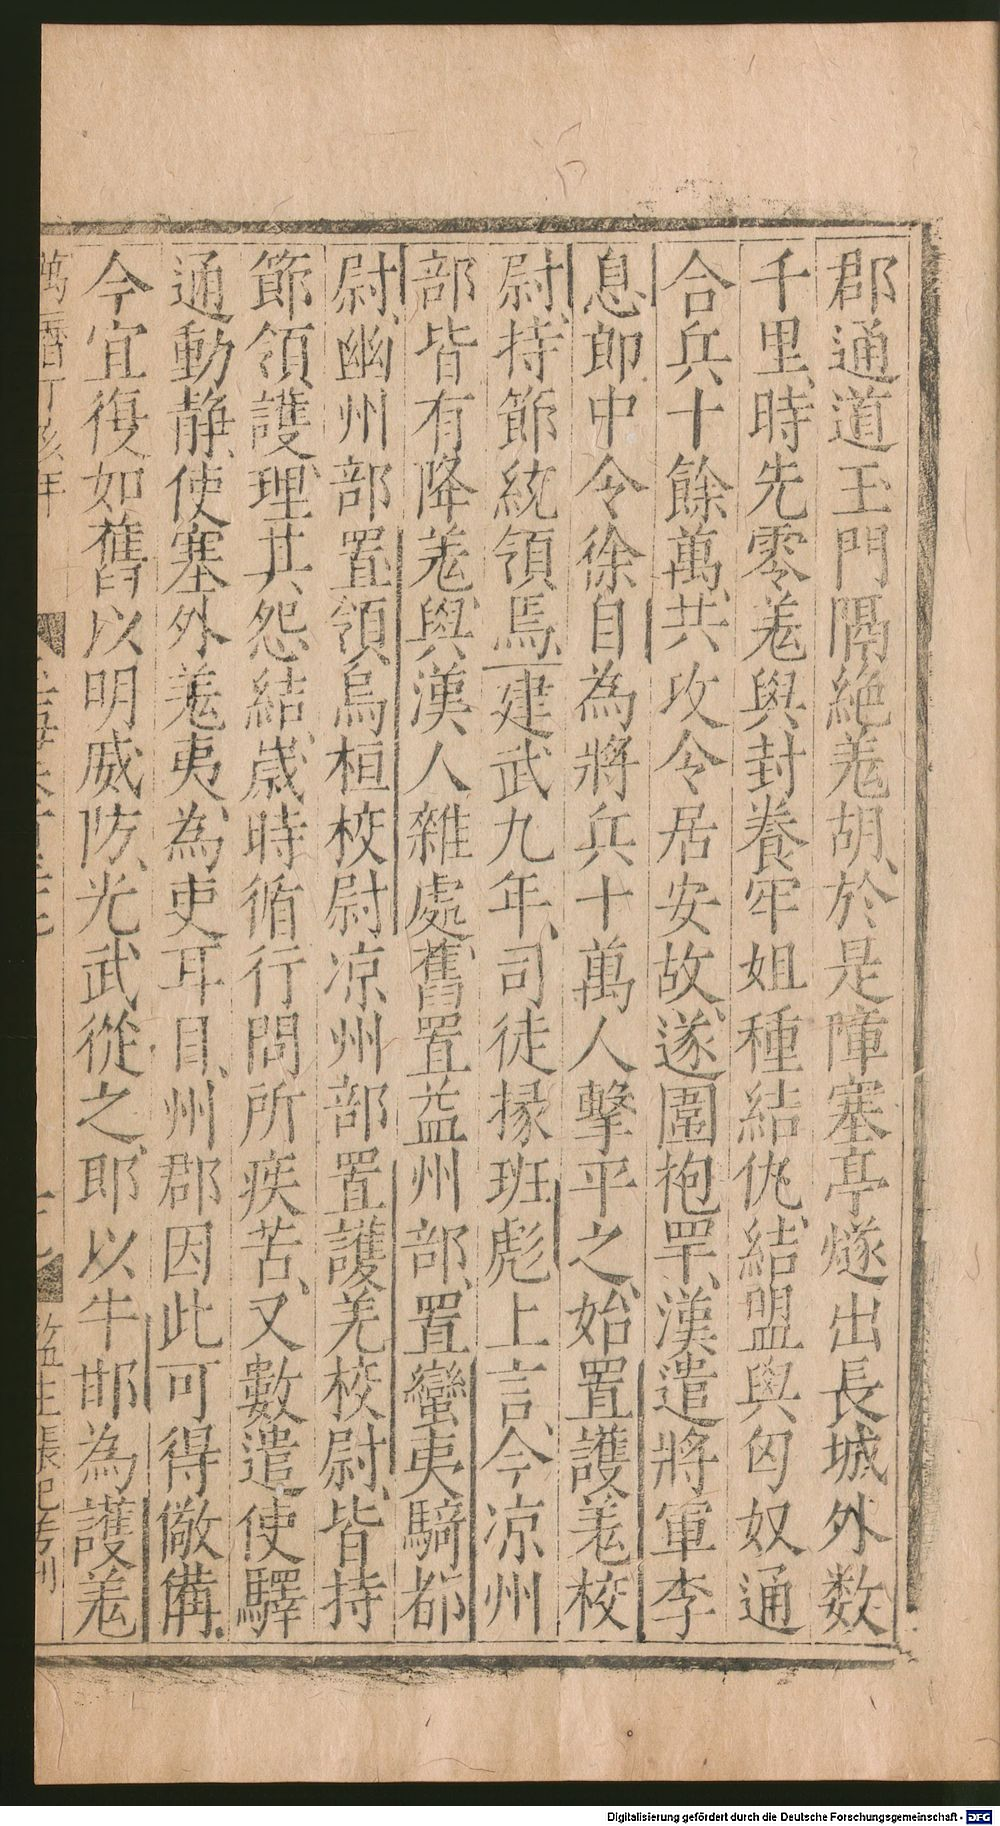 郡通道玉門隔絶羗胡、於是障塞亭燧出長城外数
千里、時先零羗與封養牢姐種結仇、結盟與匈奴通
合兵十餘萬、共攻令居安故、遂圍抱罕、漢遣將軍李
息、郎中令徐自為將兵十萬人擊平之、始置護羗校
尉、持節統領焉建武九年、司徒掾班彪上言、今凉州
部皆有降羗、與漢人雜處、舊置益州部、置蠻夷騎都
尉、幽州部置領烏桓校尉凉州部置護羌校尉、皆持
節領護、理其怨結、歲時循行、問所疾苦、又數遣使驛
通動静、使塞外羗夷、為吏耳目、州郡因此可得儆備、
今宜復如舊以明威防、光武從之、耶以牛邯為護羗
萬曆丁亥年
監生張
Digitalisierung gefördert durch die Deutsche Forschungsgemeinschaft - DFG